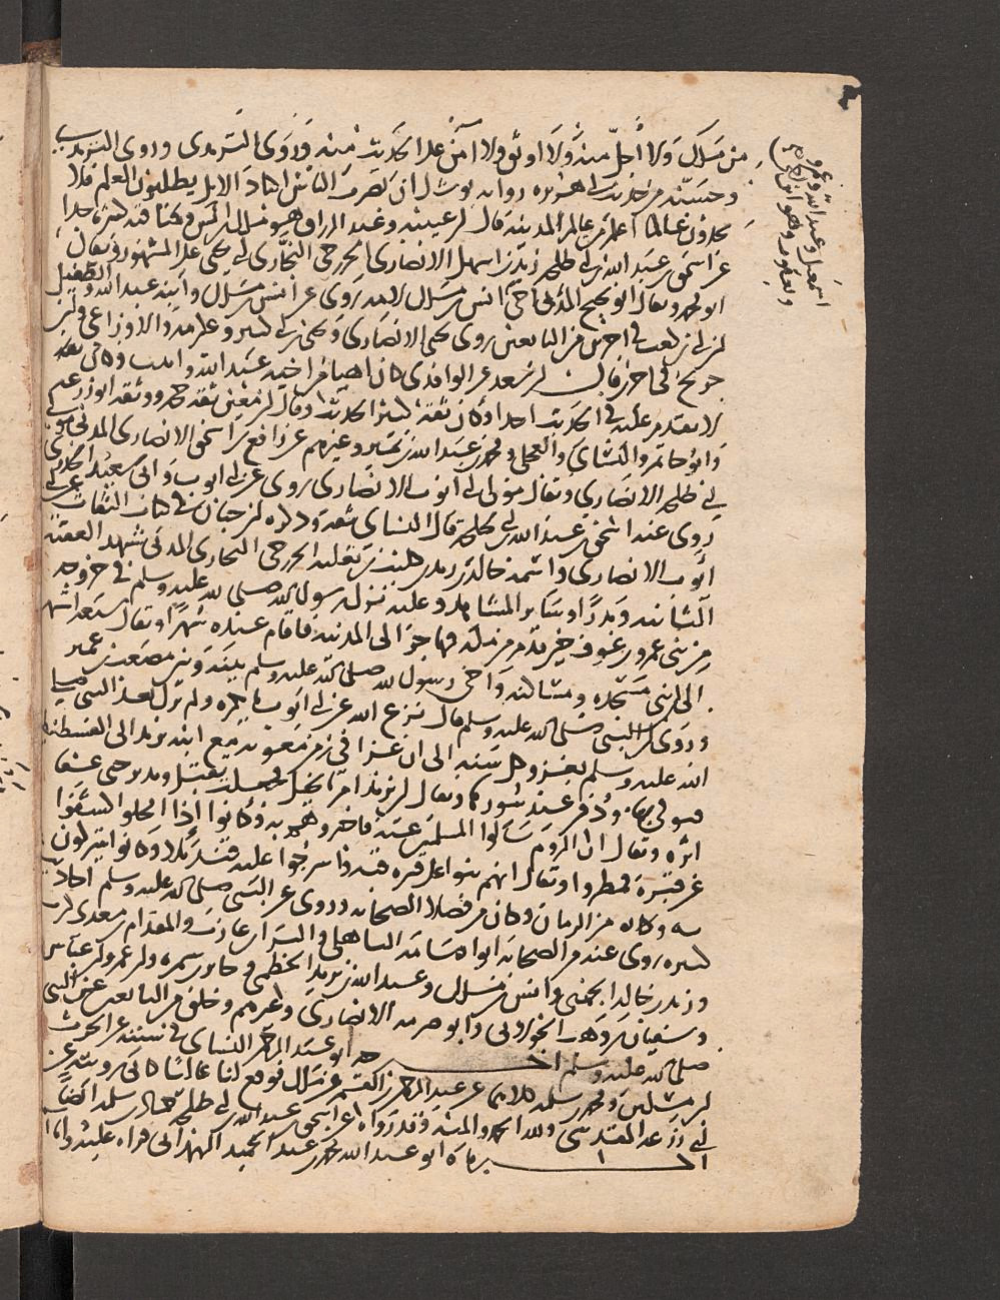 من مالك ولا أجل منه ولا اوثق ولا آمن على الحديث منه وروى الترمذي وروى الترمذي
وحسنه من حديث ابي هريرة رواية يوشك ان يضرب الناس اكباد الابل يطلبون العلم فلا
يجدون عالما اعلم من عالم المدينة قال ابن عيينة وعبد الرزاق هو مالك بن انس وكنا
عن اسحق بن عبد الله بن ابي طلحة زيد بن سهل الانصاري الخزرجي النجاري ابي يحيى على المشهور ويقال
ابو محمد ويقال ابو نجيح المدني اخي انس بن مالك لامه روى عن انس بن مالك وابيه عبد الله والطفيل
ابن ابي بن كعب في اخرين من التابعين روى يحيى الانصاري ويحيى بن ابي كثير وعكرمة والاوزاعي وابن
جريج في اخرين قال ابن سعد عن الواقدي كان اصغر من اخيه عبد الله واثبت وكان مالك
لا يقدم عليه في الحديث احدا وكان ثقة كثير الحديث وقال ابن معين ثقة حجة ووثقه ابو زرعة
وابو حاتم والنسائي والعجلي ومحمد بن عبد الله بن نمير وغيرهم عن رافع بن اسحق الانصاري المدني مولى
ابي طلحة الانصاري ويقال مولى ابي ايوب الانصاري روى عن ابي ايوب وابي سعيد الخدري
روى عنه اسحق بن عبد الله بن ابي طلحة قال النسائي ثقة وذكره ابن حبان في كتاب الثقات عن ابي
ايوب الانصاري واسمه خالد بن زيد بن كليب بن ثعلبة الخزرجي النجاري المدني شهد العقبة
الثانية وبدرا وسائر المشاهد وعليه نزل رسول الله صلى الله عليه وسلم في خروجه
من بني عمرو بن عوف حين قدم من مكة مهاجرا الى المدينة فاقام عنده شهرا ويقال سبعة اشهر
الى ان بنى مسجده ومساكنه وآخى رسول الله صلى الله عليه وسلم بينه وبين مصعب بن عمير
وروى ان النبي صلى الله عليه وسلم قال نزع الله عن ابي ايوب ما يكره ولم يزل بعد النبي صلى
الله عليه وسلم يغزو كل سنة الى ان غزا في زمن معوية مع ابنه يزيد الى القسطنطينية
فتوفي بها ودفن عند سورها ويقال ان يزيد امر بالخيل فجعلت تقبل وتدبر حتى عفا
اثره ويقال ان الروم سألوا المسلمين عنه فاخبروهم به وكانوا اذا امحلوا كشفوا
عن قبره فمطروا ويقال انهم بنوا على قبره قبة واسرجوا عليه قنديلا وكانوا يتبركون
به وكانه من الزمان وكان من فضلاء الصحابة وروى عن النبي صلى الله عليه وسلم احاديث
كثيرة روى عنه من الصحابة ابو امامة الباهلي والبراء بن عازب والمقدام بن معدي كرب
وزيد بن خالد الجهني وانس بن مالك وعبد الله بن يزيد الخطمي وجابر بن سمرة وابن عمر وابن عباس
وسفيان بن وهب الخولاني وابو صرمة الانصاري وغيرهم وخلق من التابعين عن النبي
صلى الله عليه وسلم اخرجه ابو عبد الرحمن النسائي في سننه عن الحرث
ابن مسكين ومحمد بن سلمة كلاهما عن عبد الرحمن بن القسم عن مالك فوقع لنا عاليا كاني رويته عن
ابي زرعة المقدسي ولله الحمد والمنة وقد رواه عن اسحق بن عبد الله بن ابي طلحة حماد بن سلمة ايضا
اخبرناه ابو عبد الله محمد بن عبد الحميد الهمداني قراءة عليه وانا
اسمعيل وعبد الله وعمرو
ويعقوب وهو